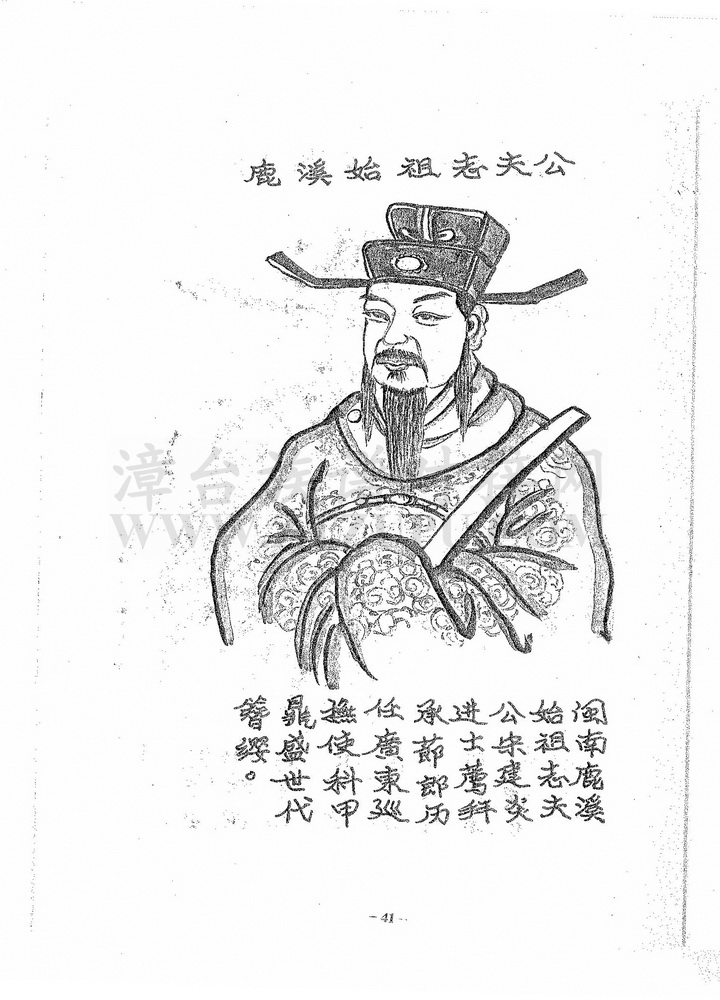 鹿溪始祖志夫公
漳台族谱对接网
闽南鹿溪
始祖志夫
公宋建炎
进士薦拜
承節郎历
任廣東廵
撫使科甲
鼎盛世代
簪缨。
- 41 -